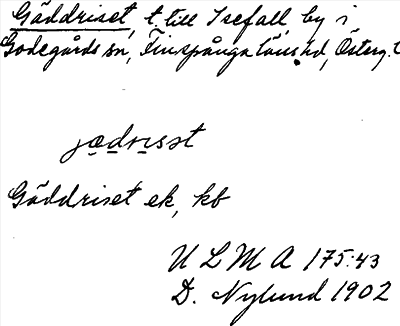 Gäddriset, t. till Isefall, by i
Godegårds sn, Finspånga läns hd, Österg. l
jædrisst
Gäddriset ek, kb
U L M A 175:43
D. Nylund 1902